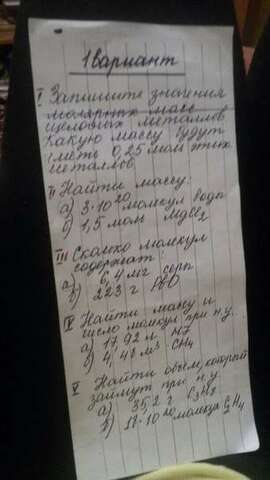 1 Вариант
I Запишите значения
молярных масс
щелочных металлов.
Какую массу будут
иметь 0,25 моль этих
металлов
II Найти массу:
а) 3·10²⁰ молекул воды
б) 1,5 моль
III Сколько молекул
содержат:
а) 6,4 мг серы
б) 223 г PbO
V Найти массу и
число молекул при н.у.
а) 17,92 л
б) 4,48 м³ CH₄
V Найти объем, который
займут при н.у.
а) 35,2 г C₃H₈
б) 18·10²⁰ молекул C₂H₄